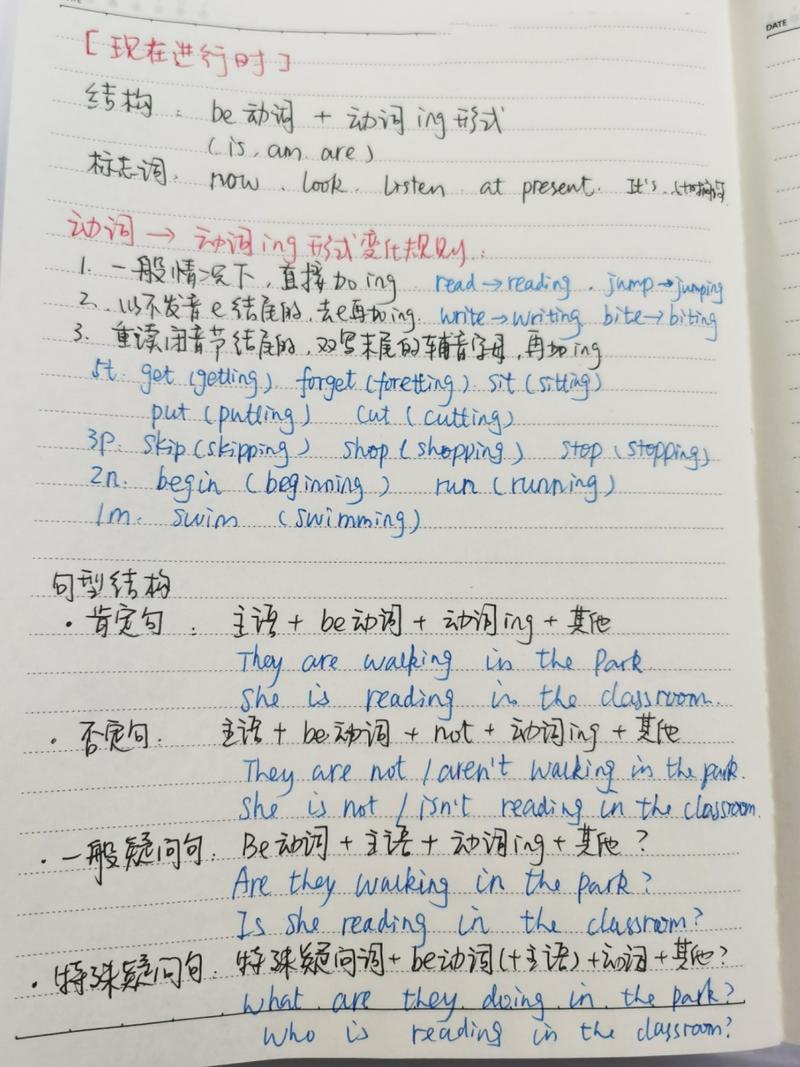 DATE
[现在进行时]
结构: be动词 + 动词ing形式
(is, am, are)
标志词: now. look. listen at present. It's
动词 → 动词ing形式变化规则:
1. 一般情况下,直接加ing read→reading. jump→jumping
2. 以不发音e结尾的,去e再加ing. write→writing bite→biting
3. 重读闭音节结尾的,双写末尾的辅音字母,再加ing
5t. get (getting) forget (foretting) sit (sitting)
put (putting) cut (cutting)
3p. skip (skipping) shop (shopping) stop (stopping)
2n. begin (beginning) run (running)
1m. swim (swimming)
句型结构
·肯定句: 主语 + be动词 + 动词ing + 其他
They are walking in the park
She is reading in the classroom.
·否定句: 主语 + be动词 + not + 动词ing + 其他
They are not / aren't walking in the park.
She is not / isn't reading in the classroom.
·一般疑问句: Be动词 + 主语 + 动词ing + 其他?
Are they walking in the park?
Is she reading in the classroom?
·特殊疑问句: 特殊疑问词+ be动词(+主语)+动词+其他?
What are they doing in the park?
Who is reading in the classroom?